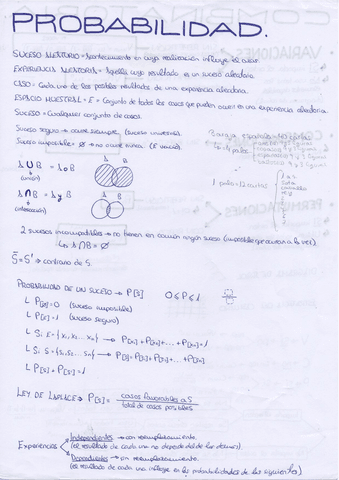 PROBABILIDAD.
SUCESO ALEATORIO = Acontecimiento en cuya realización influye el azar.
EXPERIENCIA ALEATORIA = Aquella cuyo resultado es un suceso aleatorio.
CASO = Cada uno de los posibles resultados de una experiencia aleatoria.
ESPACIO MUESTRAL = E = Conjunto de todos los casos que pueden ocurrir en una experiencia aleatoria.
SUCESO = Cualquier conjunto de casos.
Suceso seguro → ocurre siempre (suceso universal).
Suceso imposible = Ø → no ocurre nunca. (E vacío).
Baraja española = 40 cartas
→ 4 palos
A B
A ∪ B = A o B
(unión)
1 palo = 12 cartas
A ∩ B = A y B
(intersección)
A B
2 sucesos incompatibles → no tienen en común ningún suceso (imposible que ocurran a la vez).
A ∩ B = Ø
S̄ = S' → contrario de S.
PROBABILIDAD DE UN SUCESO → P[S] 0 ≤ P ≤ 1
L P[Ø] = 0 (suceso imposible)
L P[E] = 1 (suceso seguro)
L Si E = {x₁, x₂ ... xₙ} → P[x₁] + P[x₂] + ... + P[xₙ] = 1
L Si S = {s₁, s₂ ... sₙ} → P[S] = P[s₁] + P[s₂] + ... + P[sₙ]
L P[S] + P[S'] = 1
LEY DE LAPLACE → P[S] = casos favorables a S
total de casos posibles
Experiencias
Independientes → con reemplazamiento.
(el resultado de cada una no depende del de las demás).
Dependientes → sin reemplazamiento.
(el resultado de cada una influye en las probabilidades de las siguientes)